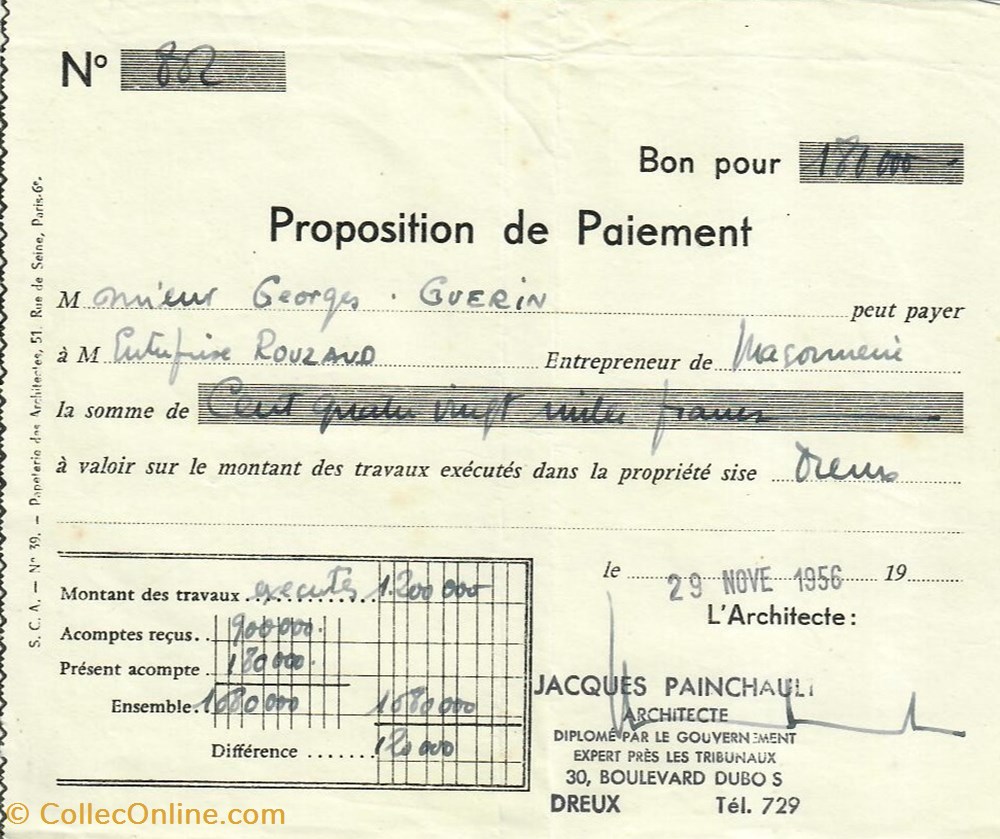 N° 802
Bon pour 180 000 -
Proposition de Paiement
M onsieur Georges . GUERIN peut payer
à M Entreprise ROUZAUD Entrepreneur de Maçonnerie
la somme de Cent quatre vingt milles francs
à valoir sur le montant des travaux exécutés dans la propriété sise Dreux
le 29 NOVE 1956 19
L'Architecte :
Montant des travaux exécutés 1.200 000
Acomptes reçus.. 900 000.
Présent acompte .. 180 000.
Ensemble.. 1080 000 1080 000
Différence ...... 120 000
JACQUES PAINCHAULT
ARCHITECTE
DIPLOMÉ PAR LE GOUVERNEMENT
EXPERT PRÈS LES TRIBUNAUX
30, BOULEVARD DUBOIS
DREUX Tél. 729
S. C. A. — N° 39. — Papeterie des Architectes, 51. Rue de Seine, Paris-6e.
© CollecOnline.com